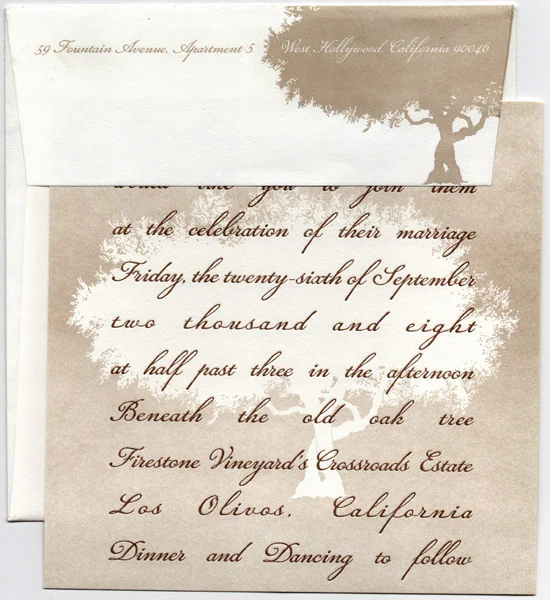 59 Fountain Avenue, Apartment 5 West Hollywood, California 90046
would like you to join them
at the celebration of their marriage
Friday, the twenty-sixth of September
two thousand and eight
at half past three in the afternoon
Beneath the old oak tree
Firestone Vineyard's Crossroads Estate
Los Olivos, California
Dinner and Dancing to follow